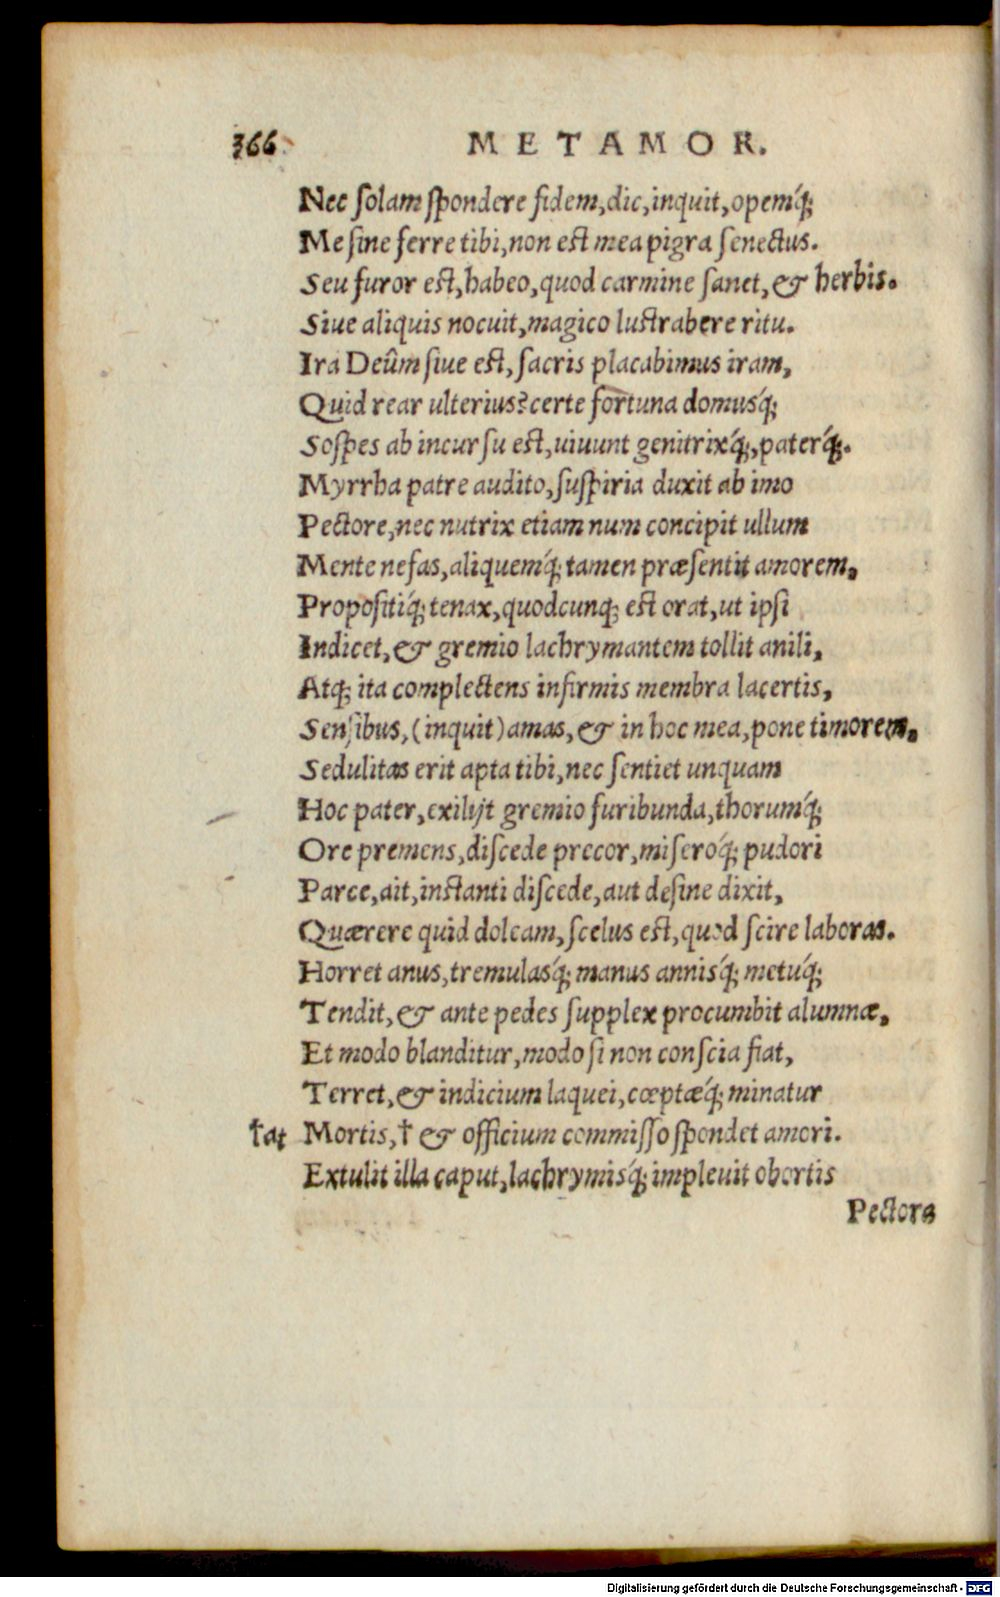 366 METAMOR.
Nec solam spondere fidem, dic, inquit, opemq́;
Me sine ferre tibi, non est mea pigra senectus.
Seu furor est, habeo, quod carmine sanet, & herbis.
Siue aliquis nocuit, magico lustrabere ritu.
Ira Deûm siue est, sacris placabimus iram,
Quid rear ulterius? certe fortuna domusq́;
Sospes ab incursu est, uiuunt genitrixq́;, paterq́;.
Myrrha patre audito, suspiria duxit ab imo
Pectore, nec nutrix etiam num concipit ullum
Mente nefas, aliquemq́; tamen præsentit amorem,
Propositiq́; tenax, quodcunq; est orat, ut ipsi
Indicet, & gremio lachrymantem tollit anili,
Atq; ita complectens infirmis membra lacertis,
Sensibus, (inquit) amas, & in hoc mea, pone timorem,
Sedulitas erit apta tibi, nec sentiet unquam
Hoc pater, exilijt gremio furibunda, thorumq́;
Ore premens, discede precor, miseroq́; pudori
Parce, ait, instanti discede, aut desine dixit,
Quærere quid doleam, scelus est, quod scire laboras.
Horret anus, tremulasq́; manus annisq́; metuq́;
Tendit, & ante pedes supplex procumbit alumnæ,
Et modo blanditur, modo si non conscia fiat,
Terret, & indicium laquei, cœptæq́; minatur
†at Mortis, † & officium commisso spondet amori.
Extulit illa caput, lachrymisq́; impleuit obortis
Pectora
Digitalisierung gefördert durch die Deutsche Forschungsgemeinschaft - DFG